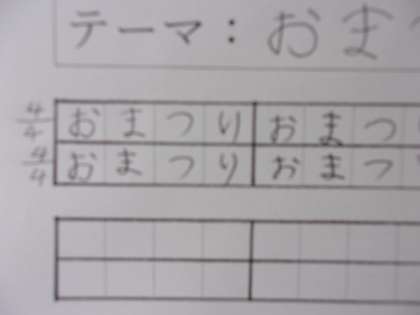 テーマ：おま
4/4 おまつり おまつ
4/4 おまつり おまつ